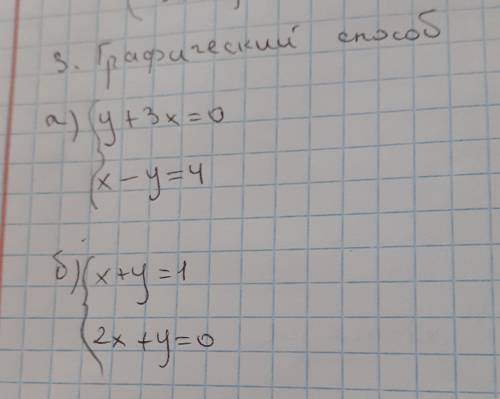 3. Графический способ
а) { y + 3x = 0
x - y = 4
б) { x + y = 1
2x + y = 0